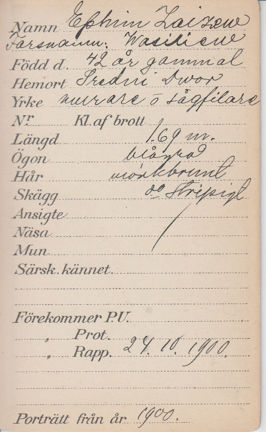 Namn Ephim Zaizew
Farsnamn: Wasiliew
Född d. 42 år gammal
Hemort Sredni Dwor
Yrke murare o sågfilare
Nr Kl. af brott
Längd 1.69 m.
Ögon blågrå
Hår mörkbrunt
Skägg do
Ansigte
Näsa
Mun
Särsk. kännet.
Förekommer P.U.
" Prot.
" Rapp. 24.10.1900.
Porträtt från år 1900.